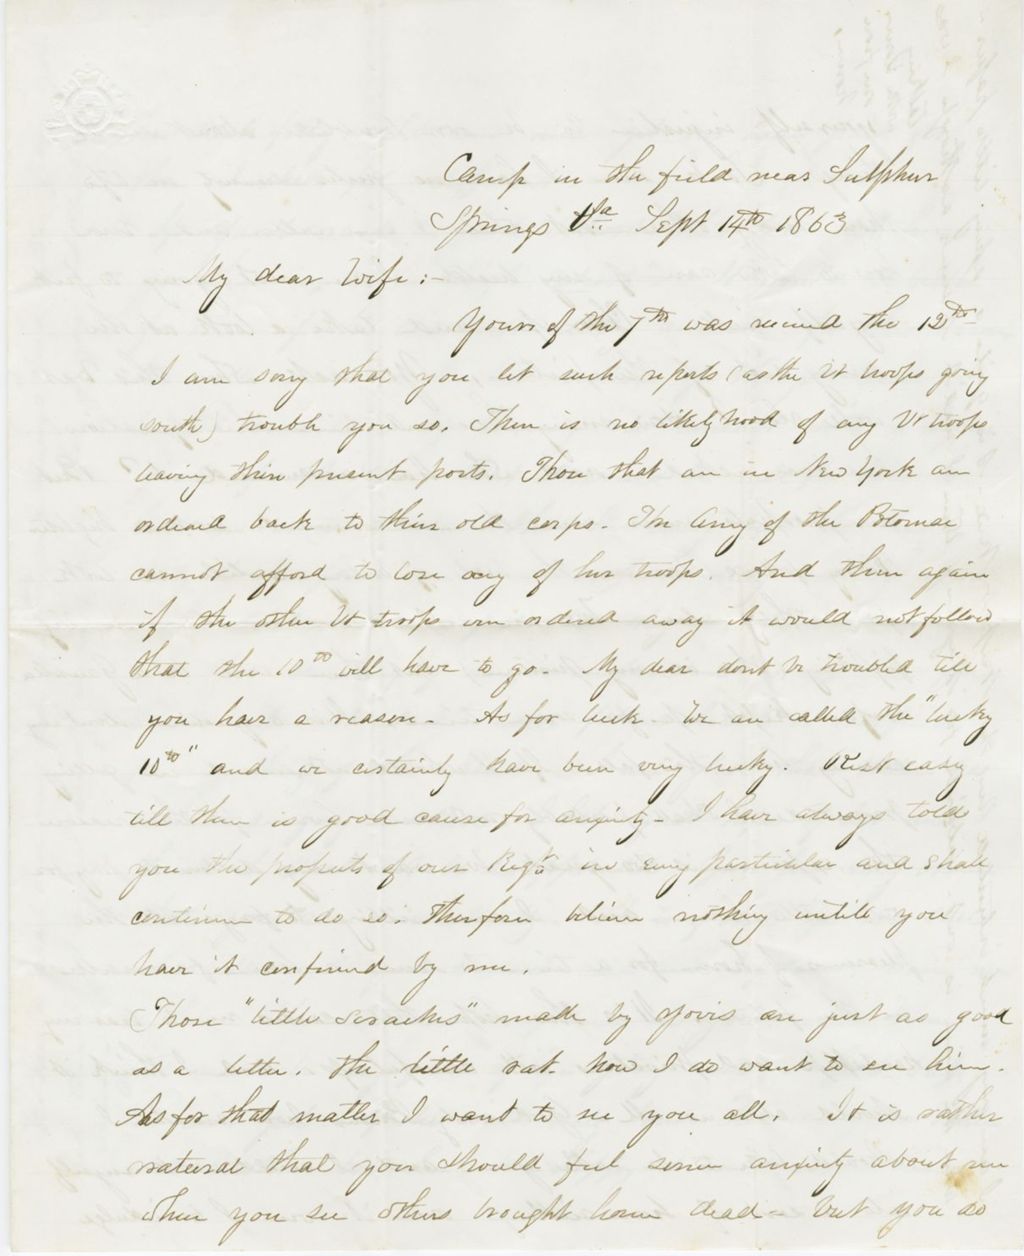 Camp in the field near Sulphur
Springs Va. Sept 14th 1863
My dear Wife:-
Yours of the 7th was received the 12th
I am sorry that you let such reports (as the Vt troops going
south) trouble you so. There is no likelyhood of any Vt troops
leaving their present posts. Those that are in New York are
ordered back to their old corps. The Army of the Potomac
cannot afford to lose any of her troops. And then again
if the other Vt troops were ordered away it would not follow
that the 10th will have to go. My dear dont be troubled till
you have a reason. As for luck. We are called the "lucky
10th" and we certainly have been very lucky. Rest easy
till there is good cause for anxiety. I have always told
you the prospects of our Regt in every particular and shall
continue to do so. Therefore believe nothing untill you
have it confirmed by me.
Those "little scratches" made by are just as good
as a letter. The little rat. how I do want to see him.
As for that matter I want to see you all. It is rather
natural that you should feel some anxiety about me
when you see others brought home dead - but you do